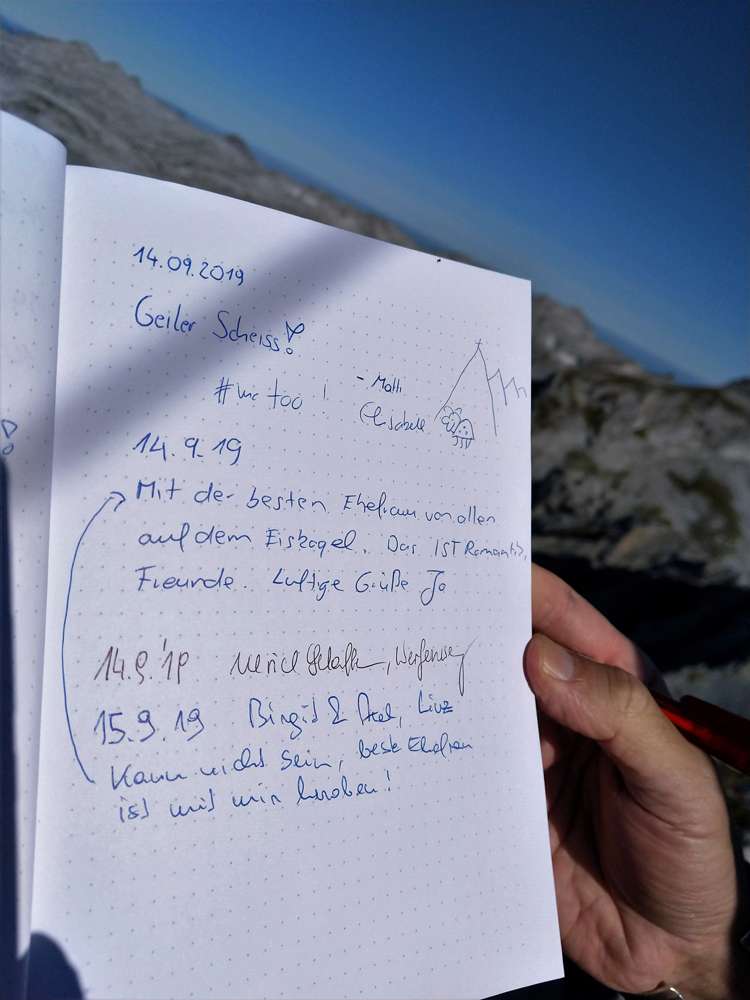 14.09.2019
Geiler Scheiss!
#me too !
- Matti
Elisabeth
14.9.19
Mit der besten Ehefrau von allen
auf dem Eiskogel. Das IST Romantik,
Freunde. Luftige Grüße Jo
14.9.'19 Ulrich, Werfenweg
15.9.19 Birgit & Axel, Linz
Kann nicht sein, beste Ehefrau
ist mit mir heroben!